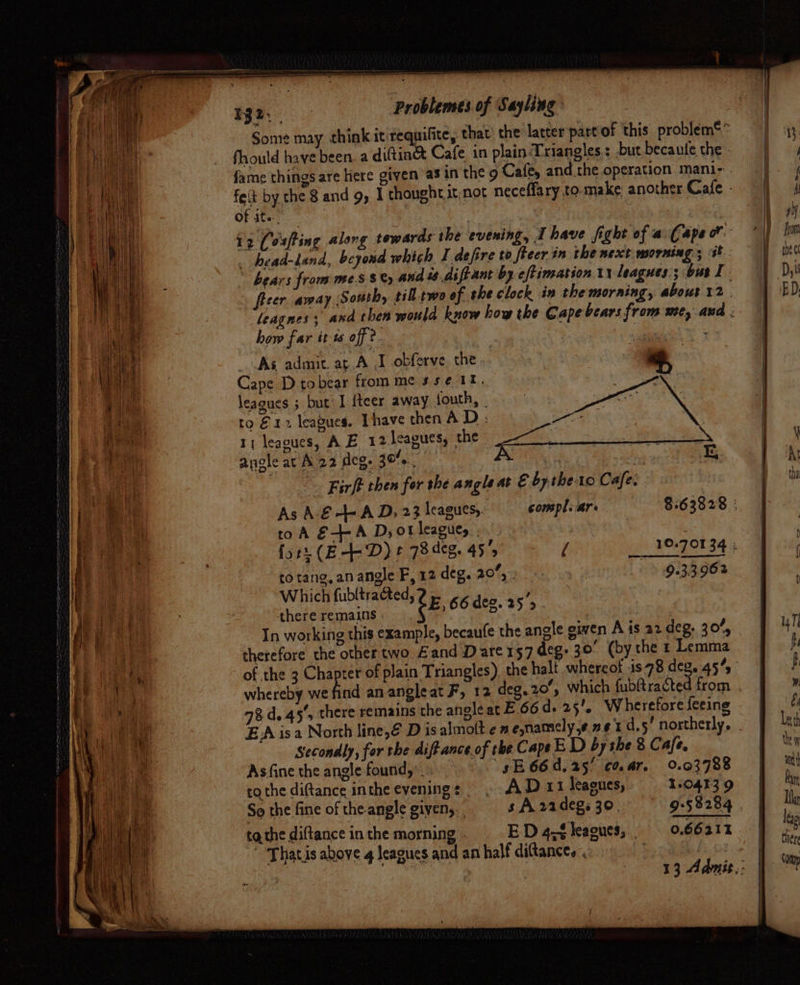 132. Problemes of Sayling
Some may think it requiſite, that the latter part of this problemᵉ
ſhould have been a diſtinct Caſe in plain Triangles; but becauſe the
ſame things are here given as in the 9 Caſe, and the operation mani-
feſt by the 8 and 9, I thought it not neceſſary to make another Caſe
of it.
12 Coaſting along towards the evening, I have ſight of a Cape or
head-land, beyond which I deſire to ſteer in the next morning; it
bears from me S S E, and is diſtant by eſtimation 11 leagues; but I
ſteer away South, till two of the clock in the morning, about 12
leagnes; and then would know how the Cape bears from me, and
how far it is off?
As admit at A I obſerve the
Cape D to bear from me s s e 11.
leagues; but I ſteer away ſouth,
to E 12 leagues. I have then A D
11 leagues, A E 12 leagues, the
angle at A 22 deg. 30'.
A E
Firſt then for the angle at E by the 10 Caſe.
As A E + A D, 23 leagues, compl. ar. 8.63828
to A E + A D, or league,
ſo t: (E + D) t 78 deg. 45', 10.70134
to tang. an angle F, 12 deg. 20', 9.33962
Which ſubſtracted, } E, 66 deg. 25',
there remains
In working this example, becauſe the angle given A is 22 deg. 30',
therefore the other two E and D are 157 deg. 30' (by the 1 Lemma
of the 3 Chapter of plain Triangles) the half whereof is 78 deg. 45',
whereby we find an angle at F, 12 deg. 20', which ſubſtracted from
78 d. 45', there remains the angle at E 66 d. 25'. Wherefore ſeeing
E A is a North line, E D is almoſt e n e, namely, e n e 1 d. 5' northerly.
Secondly, for the diſtance of the Cape E D by the 8 Caſe,
As ſine the angle found, s E 66 d. 25' co. ar. 0.03788
to the diſtance in the evening: A D 11 leagues, 1.04139
So the ſine of the angle given, s A 22 deg. 30 9.58284
to the diſtance in the morning E D leagues, 0.66211
That is above 4 leagues and an half diſtance.
13 Admit,